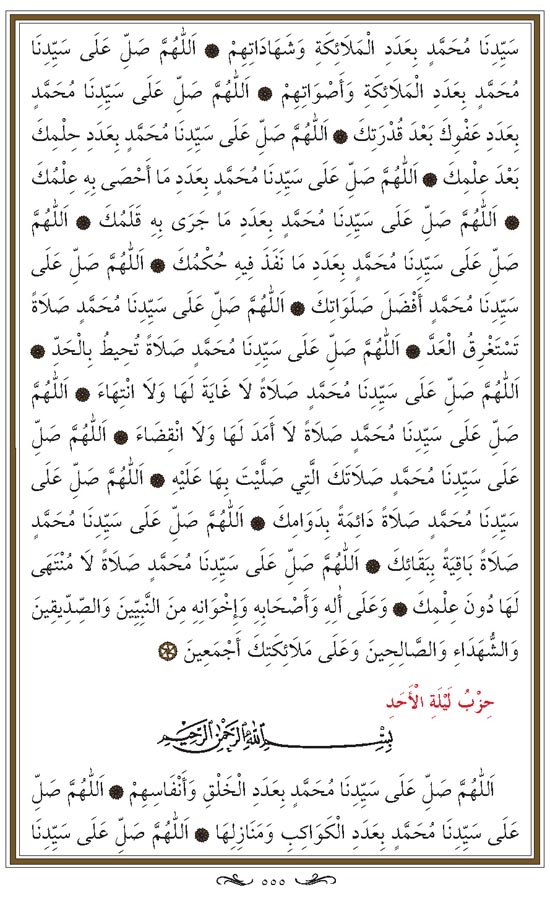 سَيِّدِنَا مُحَمَّدٍ بِعَدَدِ الْمَلَائِكَةِ وَشَهَادَاتِهِمْ ۞ اَللّٰهُمَّ صَلِّ عَلَى سَيِّدِنَا
مُحَمَّدٍ بِعَدَدِ الْمَلَائِكَةِ وَأَصْوَاتِهِمْ ۞ اَللّٰهُمَّ صَلِّ عَلَى سَيِّدِنَا مُحَمَّدٍ
بِعَدَدِ عَفْوِكَ بَعْدَ قُدْرَتِكَ ۞ اَللّٰهُمَّ صَلِّ عَلَى سَيِّدِنَا مُحَمَّدٍ بِعَدَدِ حِلْمِكَ
بَعْدَ عِلْمِكَ ۞ اَللّٰهُمَّ صَلِّ عَلَى سَيِّدِنَا مُحَمَّدٍ بِعَدَدِ مَا أَحْصَى بِهِ عِلْمُكَ
۞ اَللّٰهُمَّ صَلِّ عَلَى سَيِّدِنَا مُحَمَّدٍ بِعَدَدِ مَا جَرَى بِهِ قَلَمُكَ ۞ اَللّٰهُمَّ
صَلِّ عَلَى سَيِّدِنَا مُحَمَّدٍ بِعَدَدِ مَا نَفَذَ فِيهِ حُكْمُكَ ۞ اَللّٰهُمَّ صَلِّ عَلَى
سَيِّدِنَا مُحَمَّدٍ أَفْضَلَ صَلَوَاتِكَ ۞ اَللّٰهُمَّ صَلِّ عَلَى سَيِّدِنَا مُحَمَّدٍ صَلَاةً
تَسْتَغْرِقُ الْعَدَّ ۞ اَللّٰهُمَّ صَلِّ عَلَى سَيِّدِنَا مُحَمَّدٍ صَلَاةً تُحِيطُ بِالْحَدِّ ۞
اَللّٰهُمَّ صَلِّ عَلَى سَيِّدِنَا مُحَمَّدٍ صَلَاةً لَا غَايَةَ لَهَا وَلَا انْتِهَاءَ ۞ اَللّٰهُمَّ
صَلِّ عَلَى سَيِّدِنَا مُحَمَّدٍ صَلَاةً لَا أَمَدَ لَهَا وَلَا انْقِضَاءَ ۞ اَللّٰهُمَّ صَلِّ
عَلَى سَيِّدِنَا مُحَمَّدٍ صَلَاتَكَ الَّتِي صَلَّيْتَ بِهَا عَلَيْهِ ۞ اَللّٰهُمَّ صَلِّ عَلَى
سَيِّدِنَا مُحَمَّدٍ صَلَاةً دَائِمَةً بِدَوَامِكَ ۞ اَللّٰهُمَّ صَلِّ عَلَى سَيِّدِنَا مُحَمَّدٍ
صَلَاةً بَاقِيَةً بِبَقَائِكَ ۞ اَللّٰهُمَّ صَلِّ عَلَى سَيِّدِنَا مُحَمَّدٍ صَلَاةً لَا مُنْتَهَى
لَهَا دُونَ عِلْمِكَ ۞ وَعَلَى أٰلِهِ وَأَصْحَابِهِ وَإِخْوَانِهِ مِنَ النَّبِيِّينَ وَالصِّدِّيقِينَ
وَالشُّهَدَاءِ وَالصَّالِحِينَ وَعَلَى مَلَائِكَتِكَ أَجْمَعِينَ ۞
حِزْبُ لَيْلَةِ الْأَحَدِ
بِسْمِ اللّٰهِ الرَّحْمٰنِ الرَّحِيمِ
اَللّٰهُمَّ صَلِّ عَلَى سَيِّدِنَا مُحَمَّدٍ بِعَدَدِ الْخَلْقِ وَأَنْفَاسِهِمْ ۞ اَللّٰهُمَّ صَلِّ
عَلَى سَيِّدِنَا مُحَمَّدٍ بِعَدَدِ الْكَوَاكِبِ وَمَنَازِلِهَا ۞ اَللّٰهُمَّ صَلِّ عَلَى سَيِّدِنَا
٥٥٥